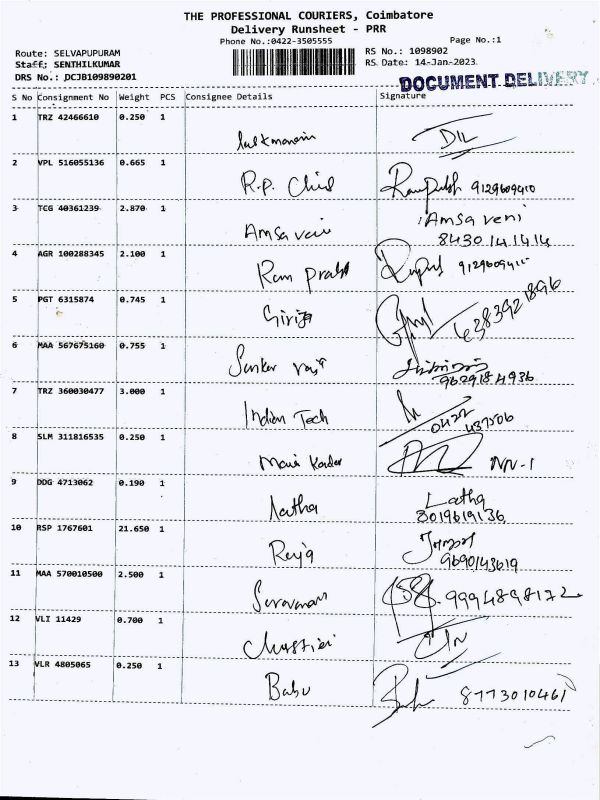 THE PROFESSIONAL COURIERS, Coimbatore
Delivery Runsheet - PRR
Phone No.:0422-3505555 Page No.:1
Route: SELVAPUPURAM RS No.: 1098902
Staff: SENTHILKUMAR RS Date: 14-Jan-2023
DRS No.: DCJB109890201 DOCUMENT DELIVERY
S No Consignment No Weight PCS Consignee Details Signature
1 TRZ 42466610 0.250 1
2 VPL 516055136 0.665 1
R.P. 9129609410
3 TCG 40361239 2.870 1
Amsa veni Amsa veni
8430141414
4 AGR 100288345 2.100 1
Ram
5 PGT 6315874 0.745 1
Girija 6383921896
6 MAA 567675160 0.755 1
9629184936
7 TRZ 360030477 3.000 1
Indian Tech 0422 437506
8 SLM 311816535 0.250 1
NN-1
9 DDG 4713062 0.190 1
Latha Latha
8019619136
10 RSP 1767601 21.650 1
Reija
9690143619
11 MAA 570010500 2.500 1
Saravanan 9994898172
12 VLI 11429 0.700 1
13 VLR 4805065 0.250 1
Babu 8773010461